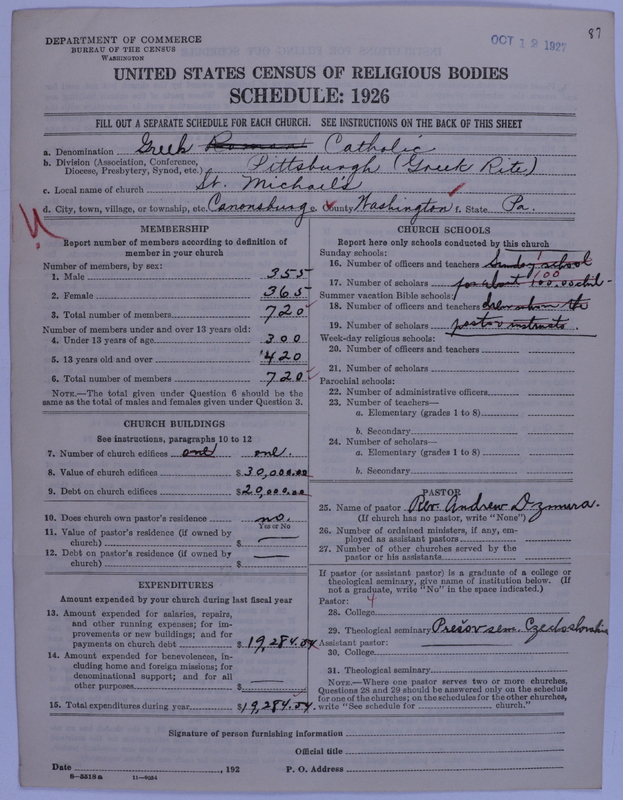 87
OCT 12 1927
DEPARTMENT OF COMMERCE
BUREAU OF THE CENSUS
WASHINGTON
UNITED STATES CENSUS OF RELIGIOUS BODIES
SCHEDULE: 1926
FILL OUT A SEPARATE SCHEDULE FOR EACH CHURCH. SEE INSTRUCTIONS ON THE BACK OF THIS SHEET
a. Denomination Greek Roman Catholic
b. Division (Association, Conference, Diocese, Presbytery, Synod, etc.) Pittsburgh (Greek Rite)
c. Local name of church St. Michael's
d. City, town, village, or township, etc. Canonsburg e. County Washington f. State Pa.
MEMBERSHIP
Report number of members according to definition of
member in your church
Number of members, by sex:
1. Male 355
2. Female 365
3. Total number of members 720
Number of members under and over 13 years old:
4. Under 13 years of age 300
5. 13 years old and over 420
6. Total number of members 720
NOTE.—The total given under Question 6 should be
same as the total of males and females given under Question 3.
CHURCH BUILDINGS
See instructions, paragraphs 10 to 12
7. Number of church edifices one one.
8. Value of church edifices $30,000.00
9. Debt on church edifices $20,000.00
10. Does church own pastor's residence no.
Yes or No
11. Value of pastor's residence (if owned by
church) $ —
12. Debt on pastor's residence (if owned by
church) $ —
EXPENDITURES
Amount expended by your church during last fiscal year
13. Amount expended for salaries, repairs,
and other running expenses; for im-
provements or new buildings; and for
payments on church debt $ 19,284.54
14. Amount expended for benevolences, in-
cluding home and foreign missions; for
denominational support; and for all
other purposes $ —
15. Total expenditures during year $19,284.54
CHURCH SCHOOLS
Report here only schools conducted by this church
Sunday schools:
16. Number of officers and teachers Sunday school 1
17. Number of scholars for about 100.00 chil- 100
Summer vacation Bible schools:
18. Number of officers and teachers the
19. Number of scholars pastor instructs.
Week-day religious schools:
20. Number of officers and teachers
21. Number of scholars
Parochial schools:
22. Number of administrative officers
23. Number of teachers—
a. Elementary (grades 1 to 8)
b. Secondary
24. Number of scholars—
a. Elementary (grades 1 to 8)
b. Secondary
PASTOR
25. Name of pastor Rev. Andrew Dzmura.
(If church has no pastor, write "None")
26. Number of ordained ministers, if any, em-
ployed as assistant pastors
27. Number of other churches served by the
pastor or his assistants
If pastor (or assistant pastor) is a graduate of a college or
theological seminary, give name of institution below. (If
not a graduate, write "No" in the space indicated.)
Pastor: 4
28. College
29. Theological seminary Prešov sem. Czechoslovakia
Assistant pastor:
30. College
31. Theological seminary
NOTE.—Where one pastor serves two or more churches,
Questions 28 and 29 should be answered only on the schedule
for one of the churches; on the schedules for the other churches,
write "See schedule for ____ church."
Signature of person furnishing information
Official title
Date ____, 192 P. O. Address
8—5518a 11—9034